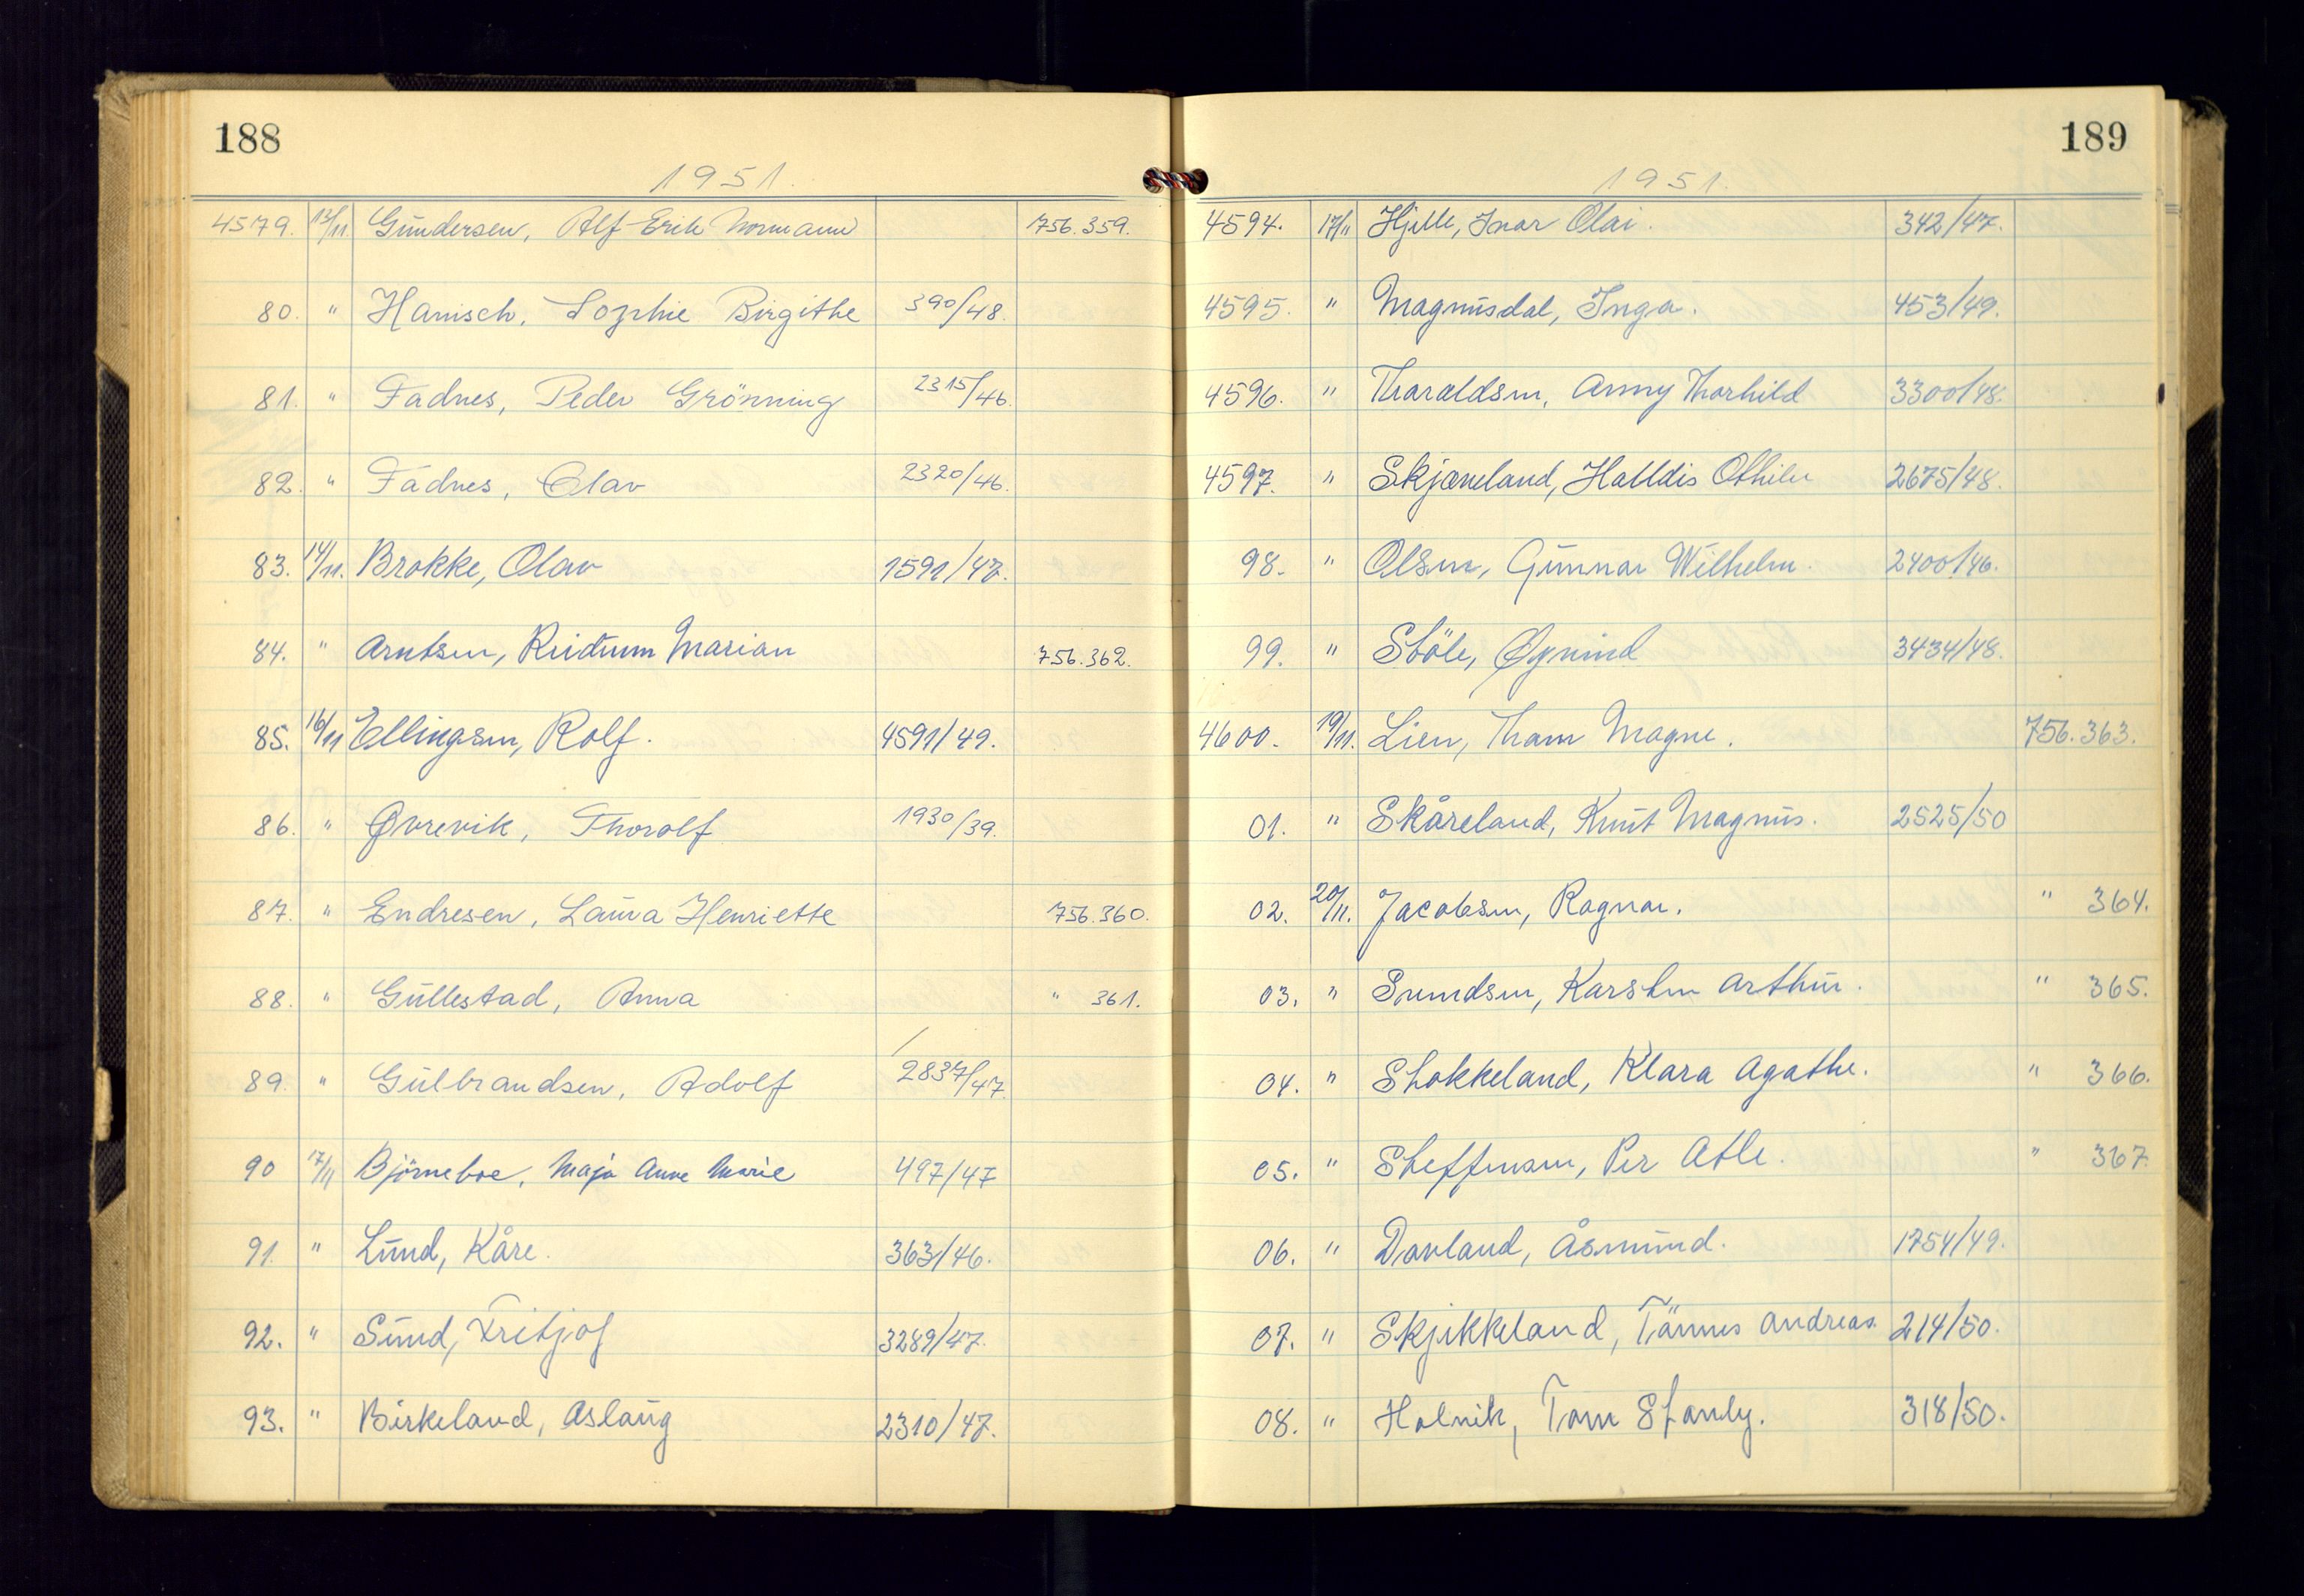 188
1951.
4579. 13/11 Gundersen, Alf-Erik Normann 756.359.
80. " Hanisch, Sophie Birgithe 390/48.
81. " Fadnes, Peder Grönning 2315/46.
82. " Fadnes, Olav 2320/46.
83. 14/11. Brokke, Olav 1591/47.
84. " Arntsen, Marian 756.362.
85. 16/11 Ellingsen, Rolf. 4591/49.
86. " Øvrevik, Thorolf 1930/39.
87. " Endresen, Laura Henriette 756.360.
88. " Gullestad, Anna " 361.
89. " Gulbrandsen, Adolf 2837/47.
90 17/11 Björneboe, Maja Anne Marie 497/47
91. " Lund, Kåre. 363/46.
92. " Sund, Fritjof 3289/47.
93. " Birkeland, Aslaug 2310/47.
189
1951.
4594. 17/11 Hjelle, Inar Olai. 342/47.
4595. " Magnusdal, Inga. 453/49.
4596. " Tharaldsen, Anny Thorhild 3300/48.
4597. " Skjæveland, Halldis Othilie 2675/48.
98. " Olsen, Gunnar Wilhelm. 2400/46.
99. " Stöle, Øyvind 3434/48.
4600. 19/11. Lien, Tham Magne. 756.363.
01. " Skåreland, Knut Magnus. 2525/50
02. 20/11. Jacobsen, Ragnar. " 364.
03. " Svendsen, Karsten Arthur. " 365.
04. " Stokkeland, Klara Agathe. " 366.
05. " Steffensen, Per Atle. " 367.
06. " Dovland, Åsmund. 1754/49.
07. " Skjekkeland, Tännes Andreas 214/50.
08. " Holvik, Tom Stanly. 318/50.